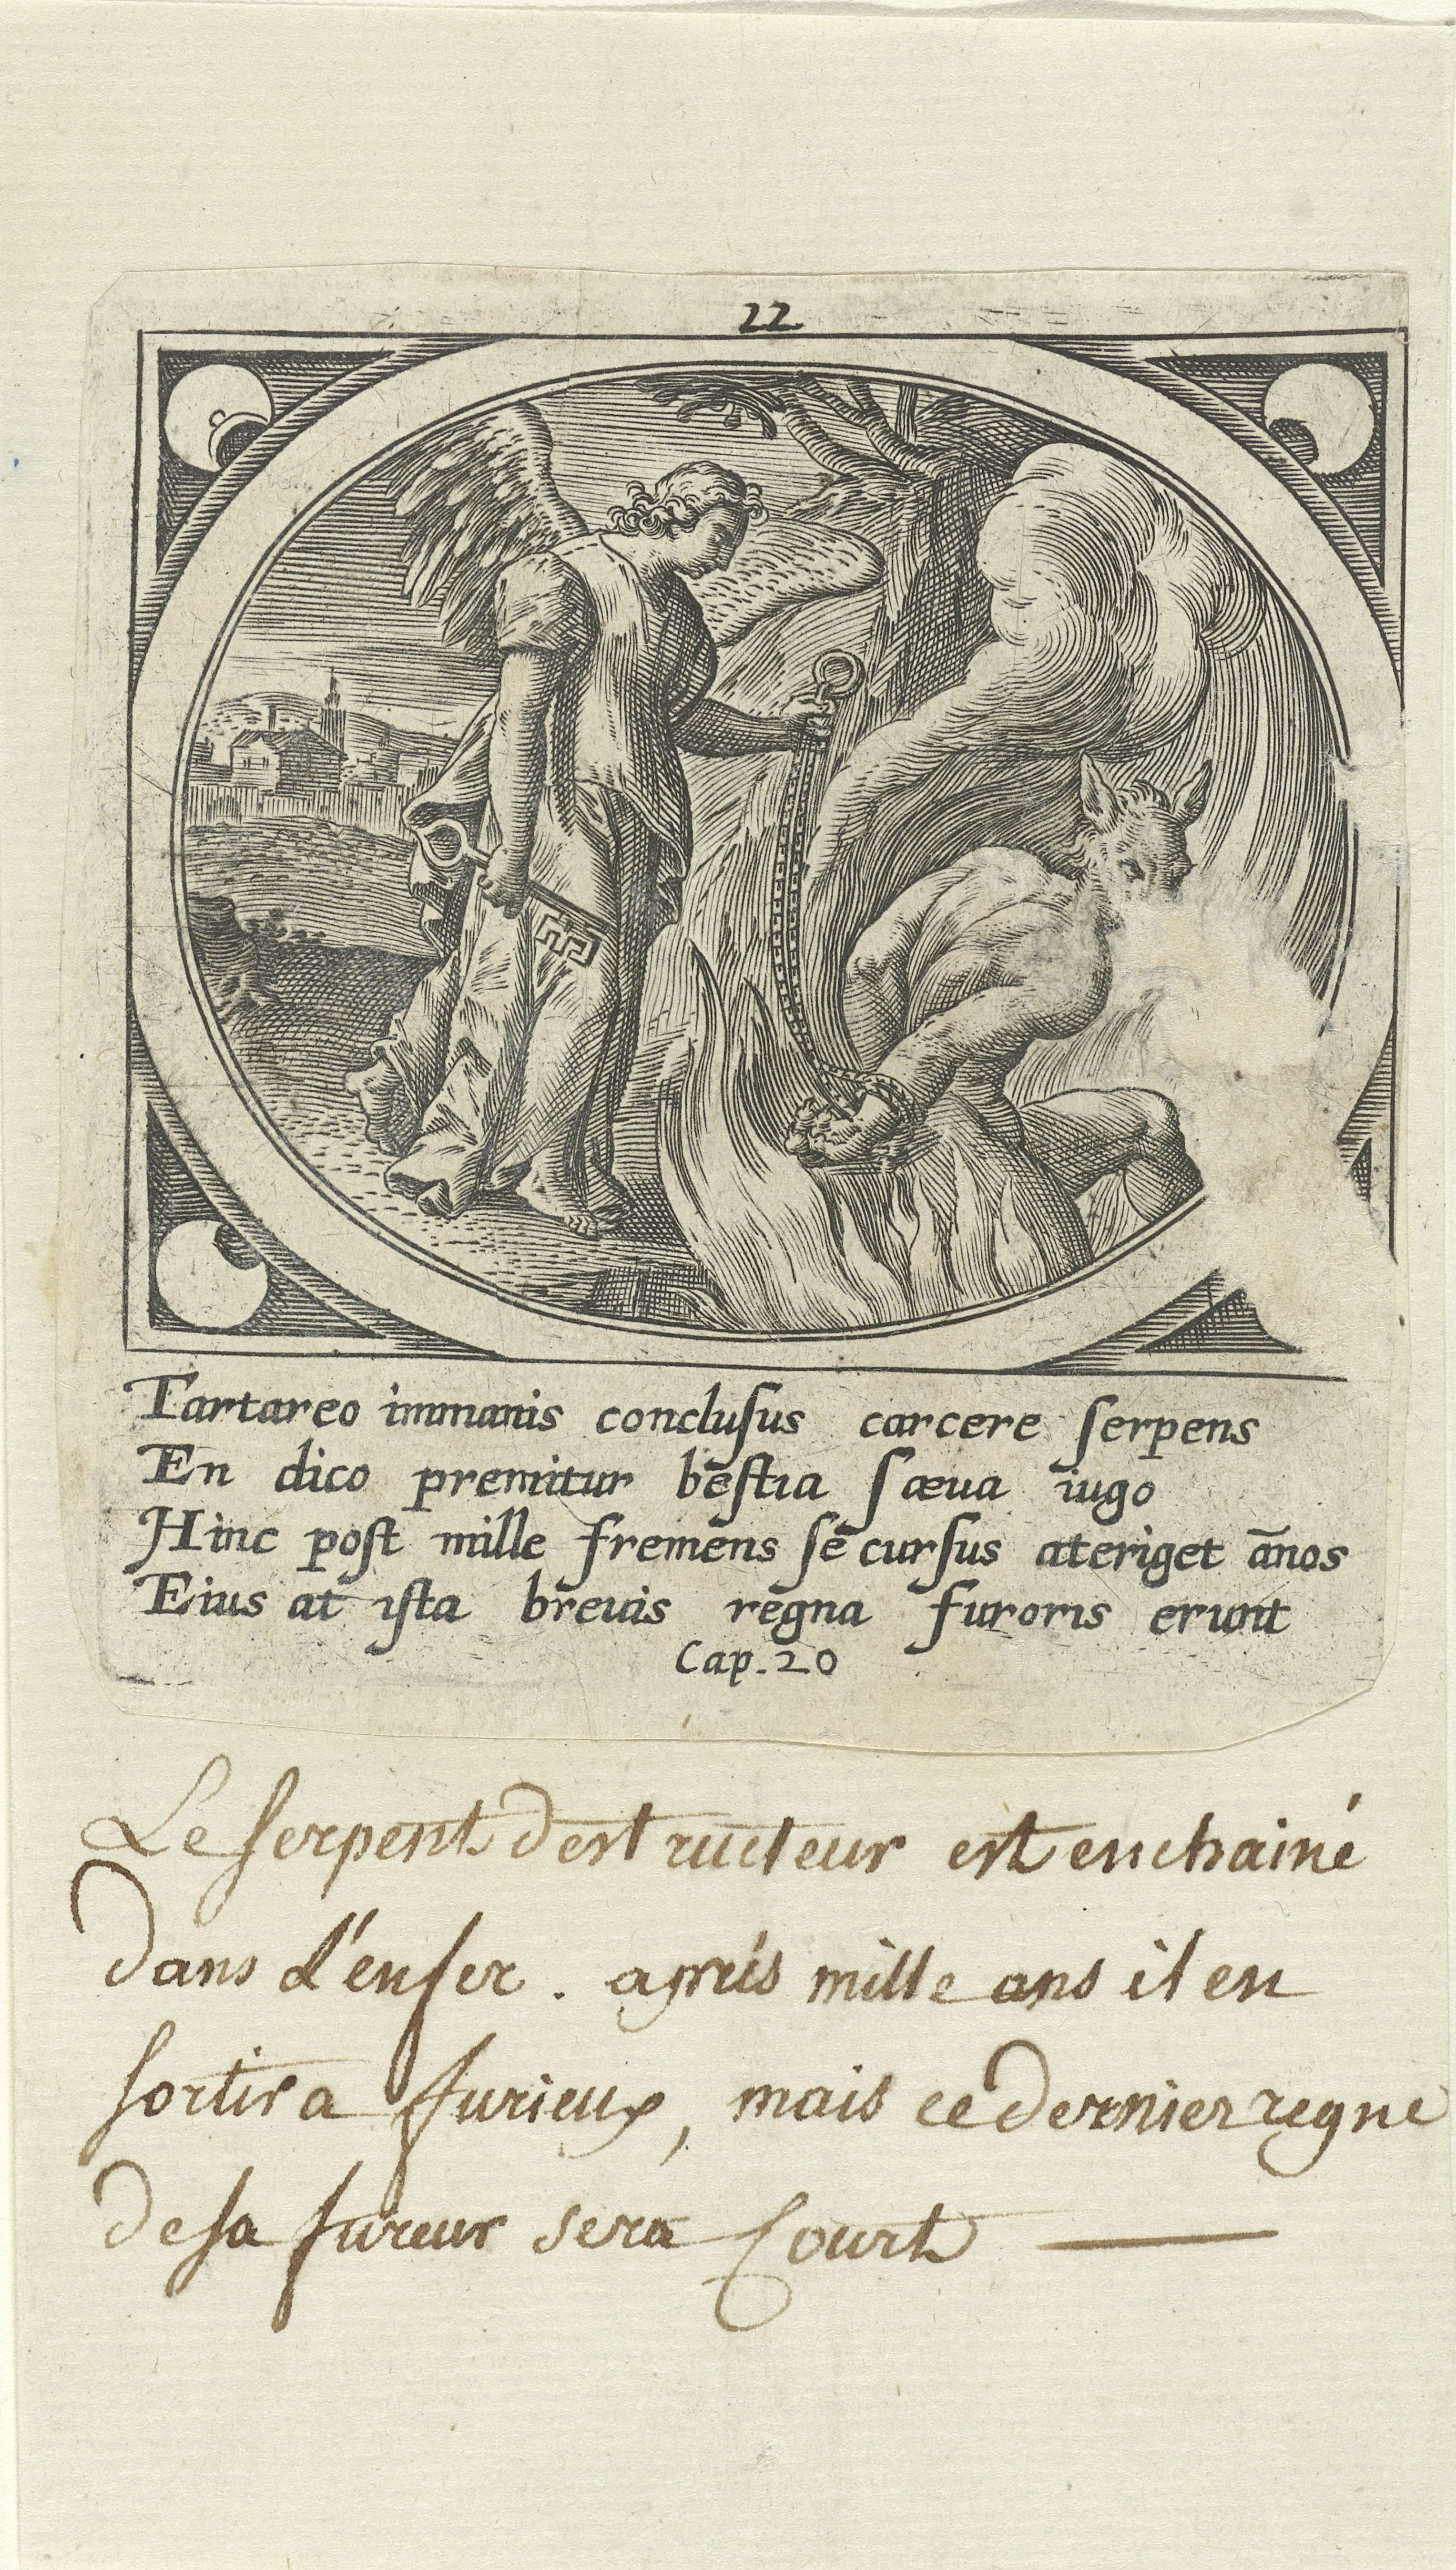 22
Tartareo immanis conclusus carcere serpens
En dico premitur bestia sæua iugo
Hinc post mille fremens se cursus ateriget ānos
Eius at ista breuis regna furoris erunt
Cap. 20
Le serpent destructeur est enchainé
dans l'enfer. aprés mille ans il en
sortira furieux, mais ce dernier regne
de sa fureur sera Court